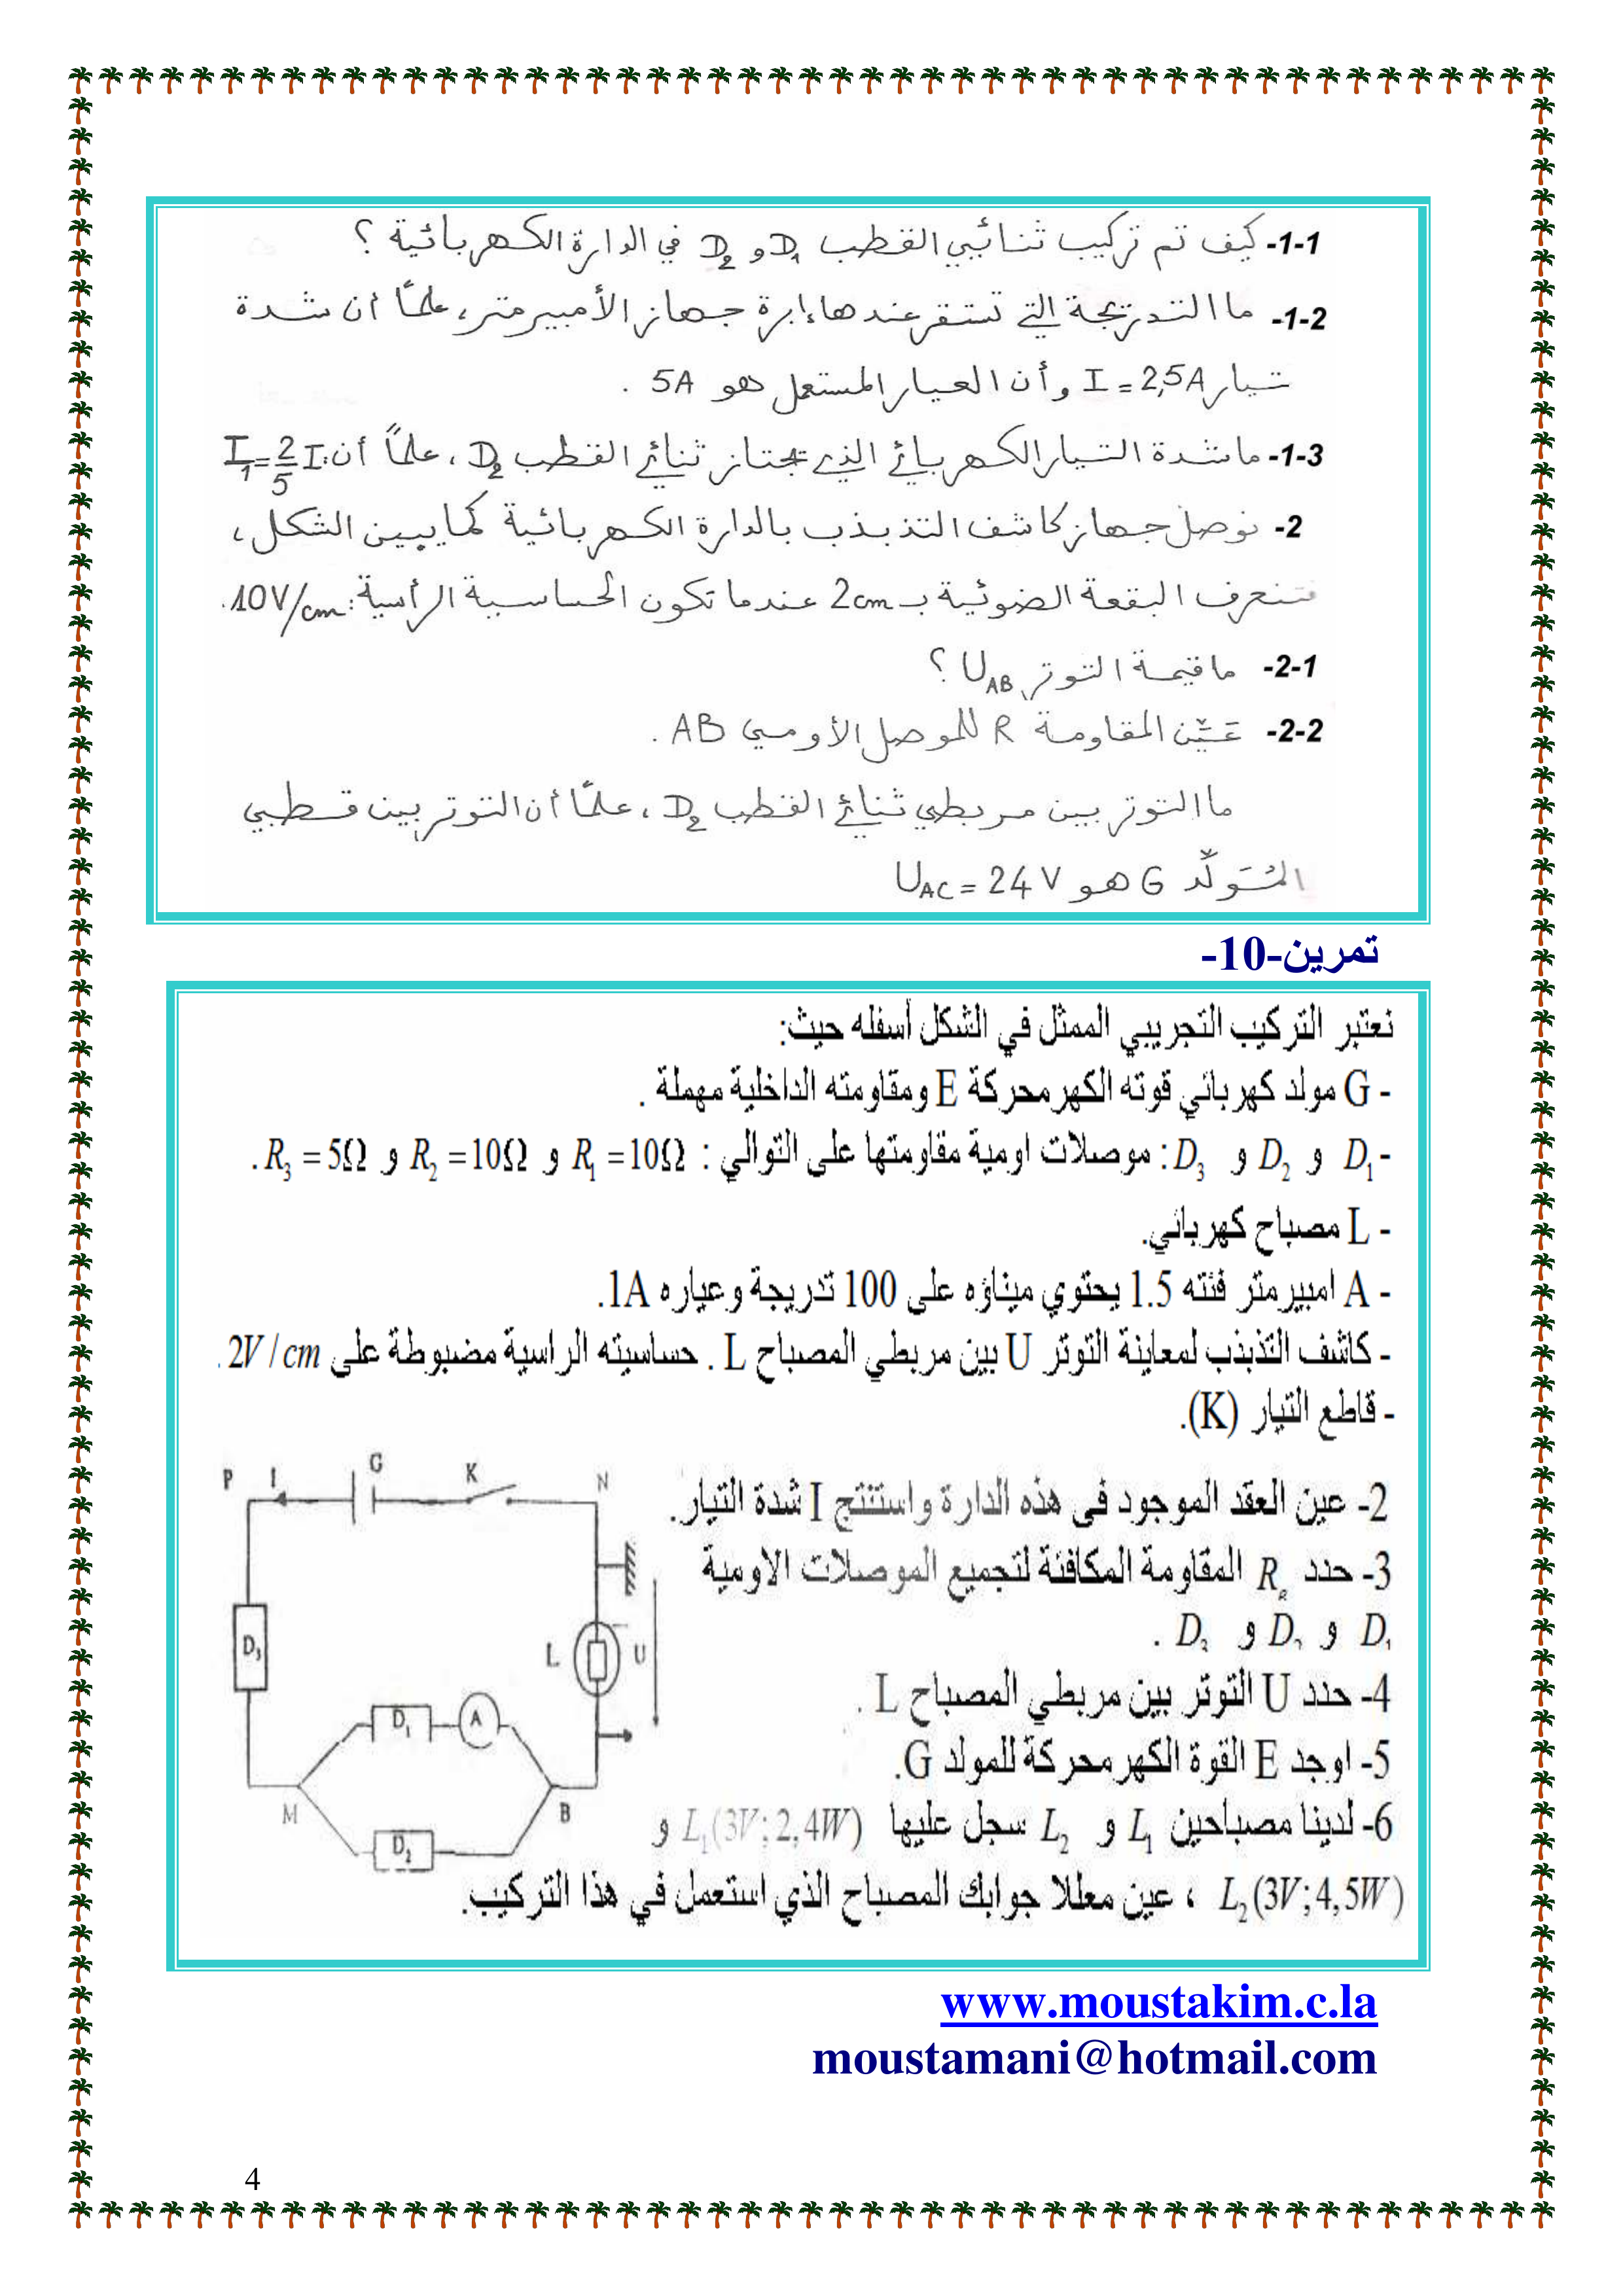 1-1- كيف تم تركيب ثنائيي القطب D₁ و D₂ في الدارة الكهربائية ؟
1-2- ما التدريجة التي تستقر عندها إبرة جهاز الأمبيرمتر، علمًا أن شدة
تيار I = 2,5A وأن العيار المستعمل هو 5A .
1-3- ما شدة التيار الكهربائي الذي يجتاز ثنائي القطب D₂ ، علمًا أن: I₁ = 2/5 I
2- نوصل جهاز كاشف التذبذب بالدارة الكهربائية كما يبين الشكل ،
فتنحرف البقعة الضوئية بـ 2cm عندما تكون الحساسية الرأسية: 10V/cm.
2-1- ما قيمة التوتر U_AB ؟
2-2- عَيِّن المقاومة R للموصل الأومي AB .
ما التوتر بين مربطي ثنائي القطب D₂ ، علمًا أن التوتر بين قطبي
المُوَلِّد G هو U_AC = 24 V
تمرين-10-
نعتبر التركيب التجريبي الممثل في الشكل أسفله حيث:
- G مولد كهربائي قوته الكهرمحركة E ومقاومته الداخلية مهملة .
- D₁ و D₂ و D₃ : موصلات اومية مقاومتها على التوالي : R₁ =10Ω و R₂ =10Ω و R₃ = 5Ω .
- L مصباح كهربائي.
- A امبيرمتر فئته 1.5 يحتوي ميناؤه على 100 تدريجة وعياره 1A.
- كاشف التذبذب لمعاينة التوتر U بين مربطي المصباح L . حساسيته الراسية مضبوطة على 2V / cm .
- قاطع التيار (K).
P I G K N
2- عين العقد الموجود في هذه الدارة واستنتج I شدة التيار.
3- حدد Rₑ المقاومة المكافئة لتجميع الموصلات الاومية
D₁ و D₂ و D₃ .
D₃ L U
4- حدد U التوتر بين مربطي المصباح L .
D₁ A
5- اوجد E القوة الكهرمحركة للمولد G.
M B
D₂
6- لدينا مصباحين L₁ و L₂ سجل عليها L₁(3V; 2,4W) و
L₂(3V; 4,5W) ، عين معللا جوابك المصباح الذي استعمل في هذا التركيب.
www.moustakim.c.la
moustamani@hotmail.com
4